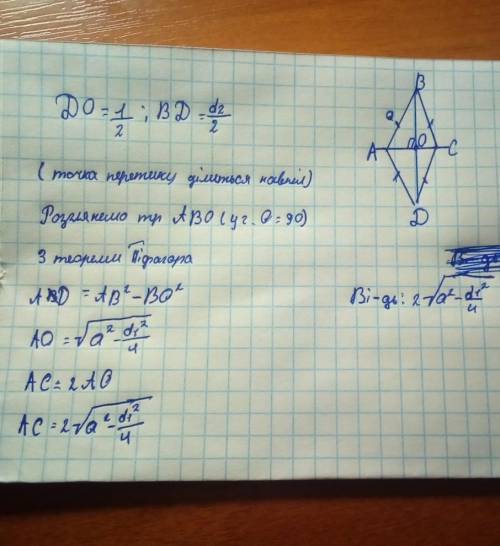 DO = 1/2 ; BD = d2/2
(точка перетину ділиться навпіл)
Розглянемо тр ABO (уг. O = 90)
З теореми Піфагора
= AB² - BO²
AO = √(a² - d1²/4)
AC = 2AO
AC = 2√(a² - d1²/4)
B
a
A O C
D
Ві-дь: 2√(a² - d1²/4)